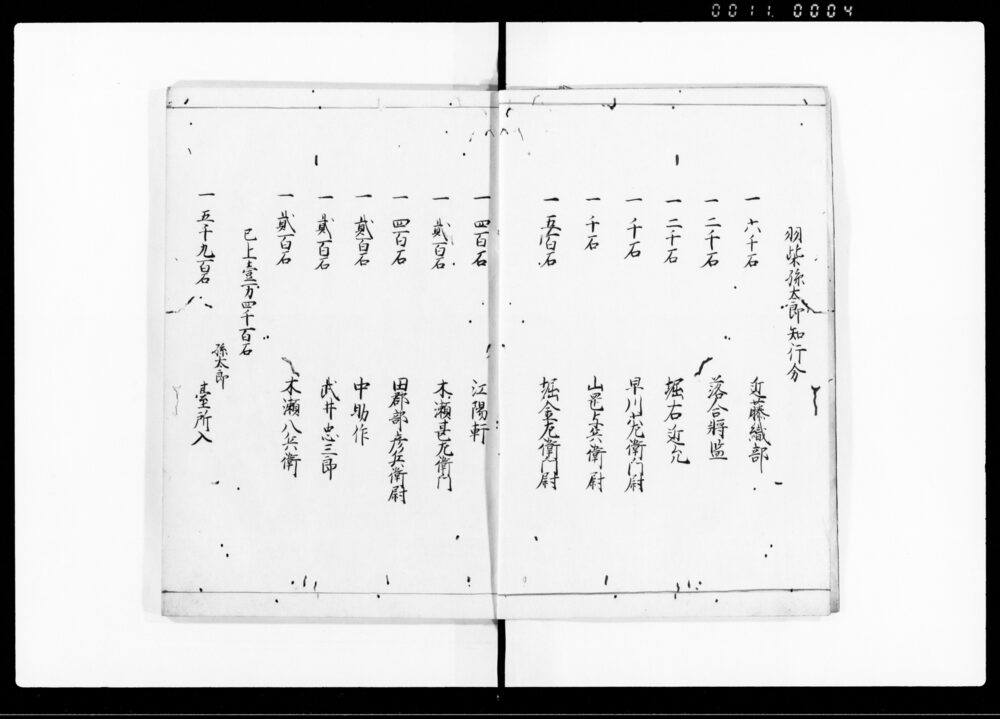 0011.0004
羽柴孫太郎知行分
一六千石 近藤織部
一二千石 落合将監
一二千石 堀右近允
一千石 早川左衛門尉
一千石 山 兵衛尉
一五百石 堀金左衛門尉
一四百石 江陽軒
一貳百石 木瀬甚左衛門
一四百石 田郡部彦兵衛尉
一貳百石 中助作
一貳百石 武井忠三郎
一貳百石 木瀬八兵衛
已上壹万四千百石
一五千九百石 孫太郎 臺所入